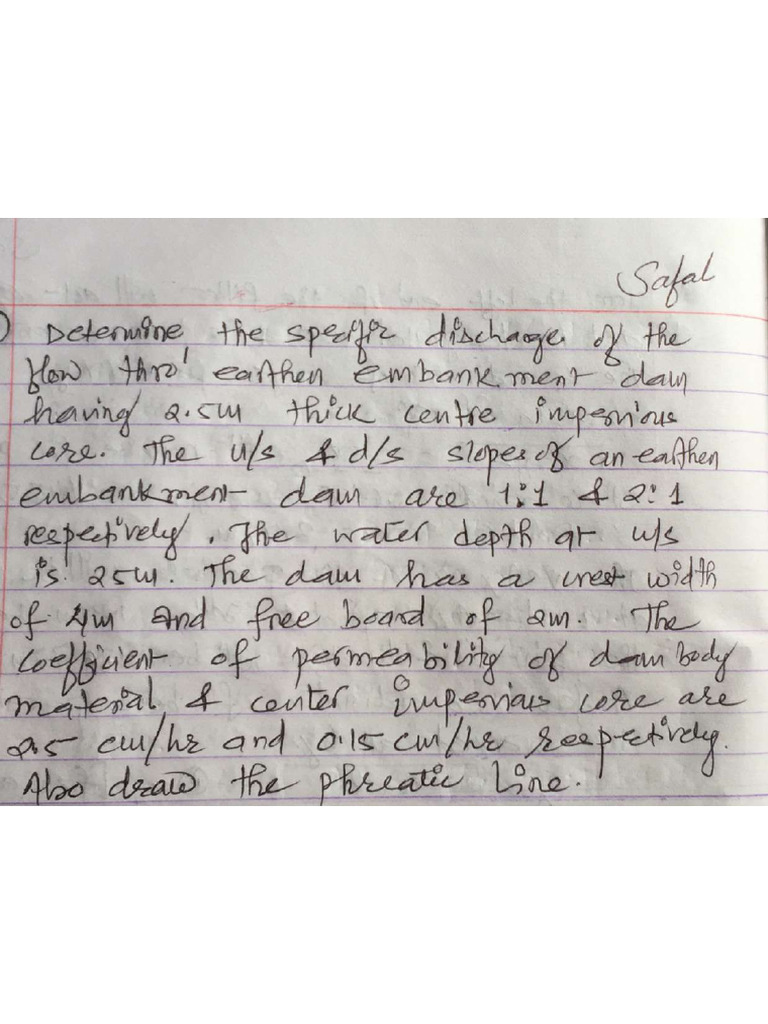 Safal
) Determine the specific discharge of the
flow thro' earthen embankment dam
having 2.5m thick centre impervious
core. The u/s & d/s slopes of an earthen
embankment dam are 1:1 & 2:1
respectively. The water depth at u/s
is 25m. The dam has a crest width
of 4m and free board of 2m. The
coefficient of permeability of dam body
material & center impervious core are
2.5 cm/hr and 0.15 cm/hr respectively.
Also draw the phreatic line.